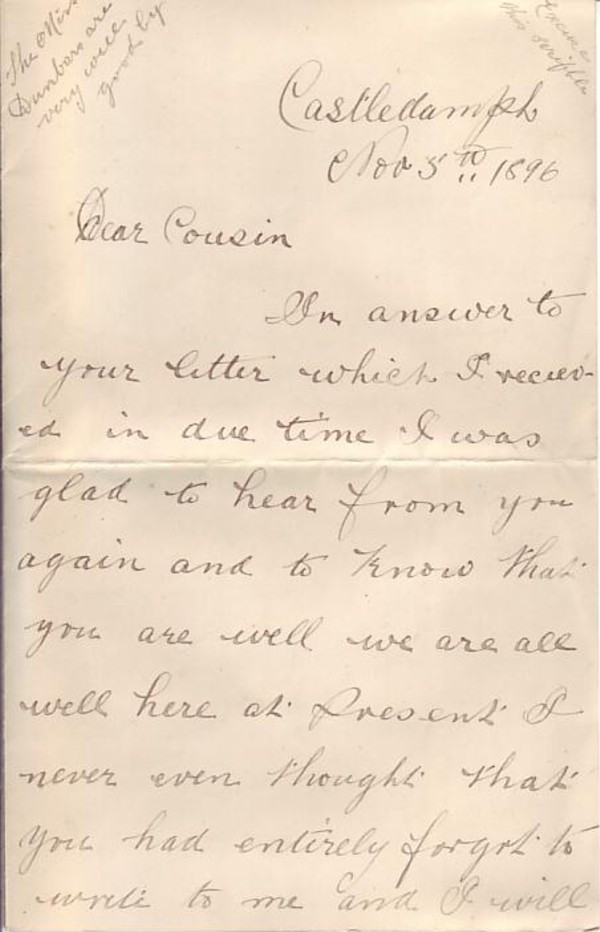 The Miss
Dunbars are
very well
good by
Excuse
this scribble
Castledamph
Nov 5th 1896
Dear Cousin
In answer to
your letter which I reciev-
ed in due time I was
glad to hear from you
again and to know that
you are well we are all
well here at present I
never even thought that
you had entirely forgot to
write to me and I will